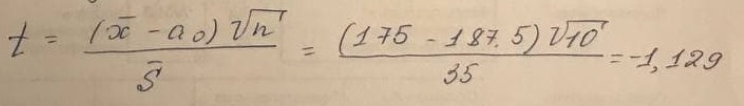 t = (x̄ - a₀) √n / S̄ = (175 - 187.5) √10 / 35 = -1,129